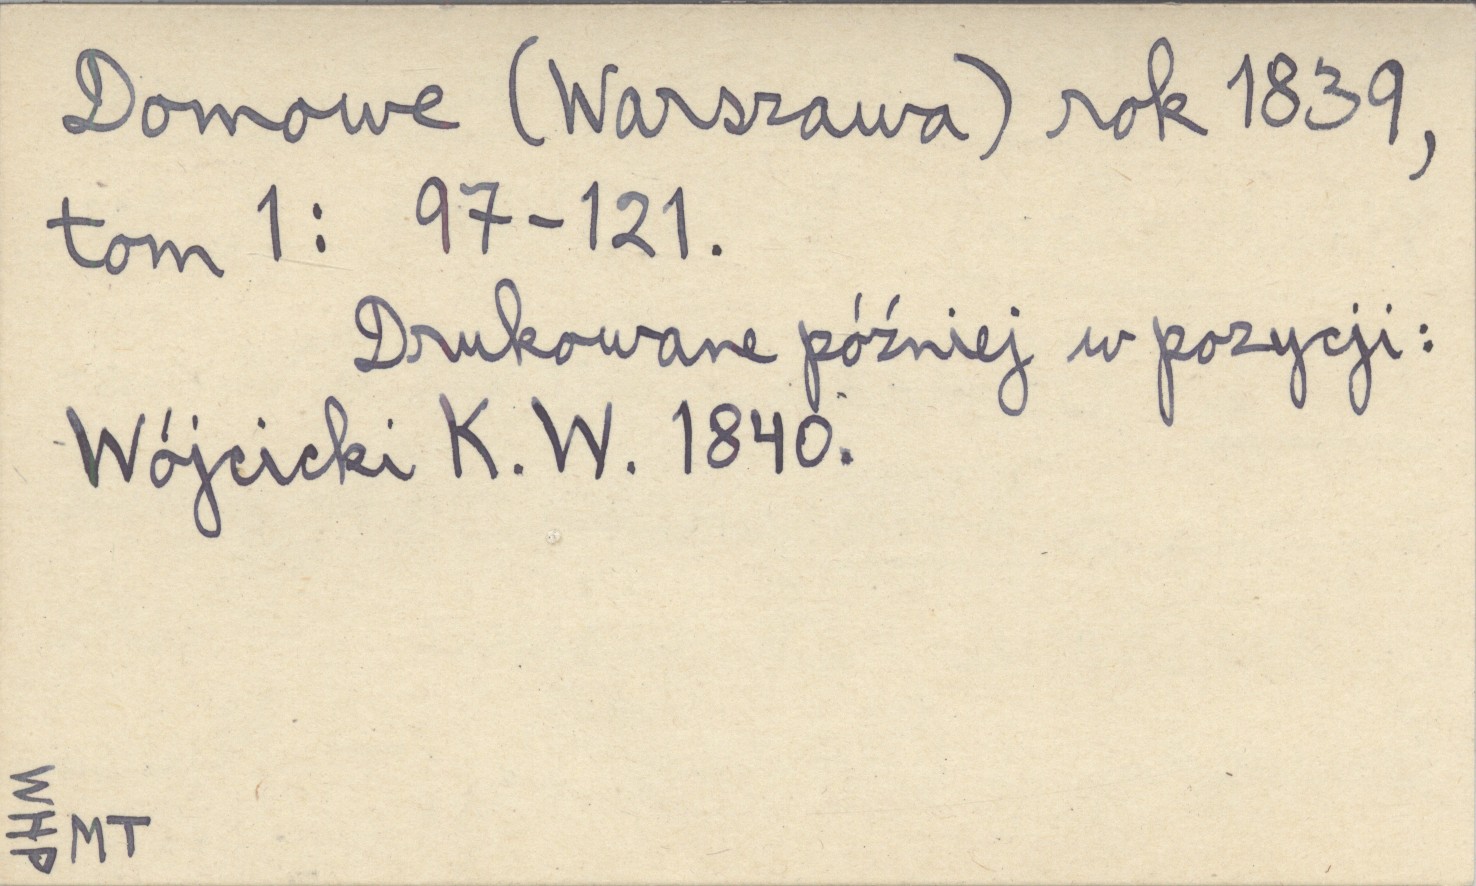 Domowe (Warszawa) rok 1839,
tom 1: 97-121.
Drukowane później w pozycji:
Wójcicki K. W. 1840.
WHP
MT